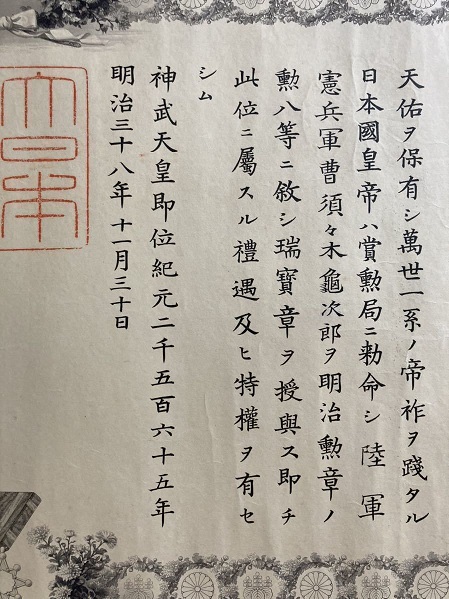 天佑ヲ保有シ萬世一系ノ帝祚ヲ踐タル
日本國皇帝ハ賞勲局ニ勅命シ陸軍
憲兵軍曹須々木龜次郎ヲ明治勲章ノ
勲八等ニ敘シ瑞寶章ヲ授與ス即チ
此位ニ屬スル禮遇及ヒ特權ヲ有セ
シム
神武天皇即位紀元二千五百六十五年
明治三十八年十一月三十日
大日本